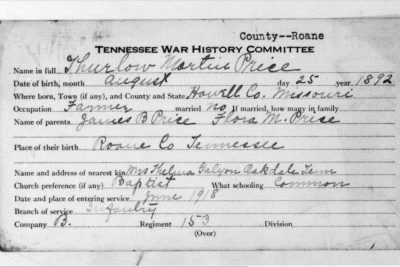 County--Roane
TENNESSEE WAR HISTORY COMMITTEE
Name in full Thurlow Martin Price
Date of birth, month August day 25 year 1892
Where born, Town (if any), and County and State Howell Co. Missouri
Occupation Farmer married no If married, how many in family
Name of parents James B Price Flora M. Price
Place of their birth Roane Co Tennessee
Name and address of nearest kin Mrs Galyon Oakdale Tenn
Church preference (if any) Baptist What schooling Common
Date and place of entering service June 1918
Branch of service Infantry
Company B. Regiment 153 Division
(Over)